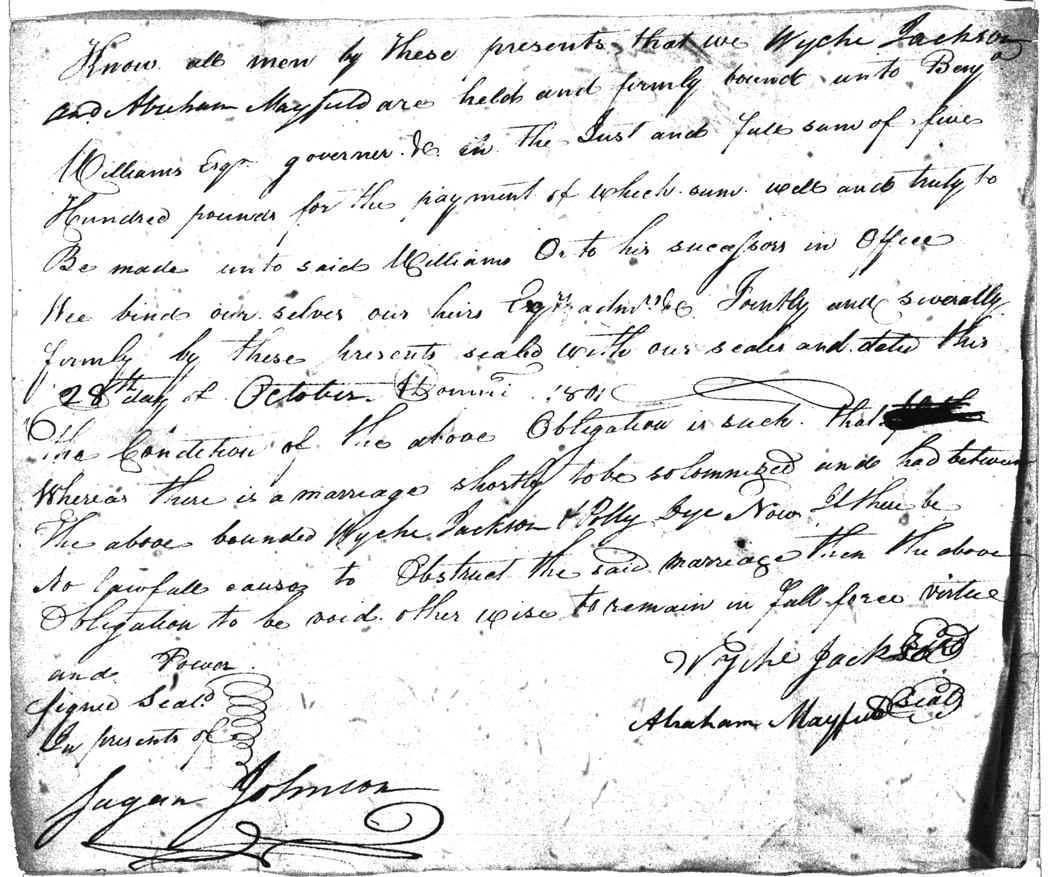 Know all men by these presents that we Wyche Jackson
and Abraham Mayfield are held and firmly bound unto Benja
Williams Esqr governer &c in the Just and full sum of five
Hundred pounds for the payment of which sum well and truly to
Be made unto said Williams Or to his successors in Office
Wee bind our selves our heirs Exrs admrs &c Jointly and severally
firmly by these presents sealed with our seales and dated this
28th day of October Domini 1801
The Condition of the above Obligation is such that
Whereas there is a marriage shortly to be solomnized and had between
The above bounded Wyche Jackson & Polly Dye Now If there be
No lawfull cause to Obstruct the said marriage then the above
Obligation to be void other wise to remain in full force virtue
and Power
signed Seald
In presents of
Wyche Jackson Seal
Abraham Mayfield Seal
Johnson